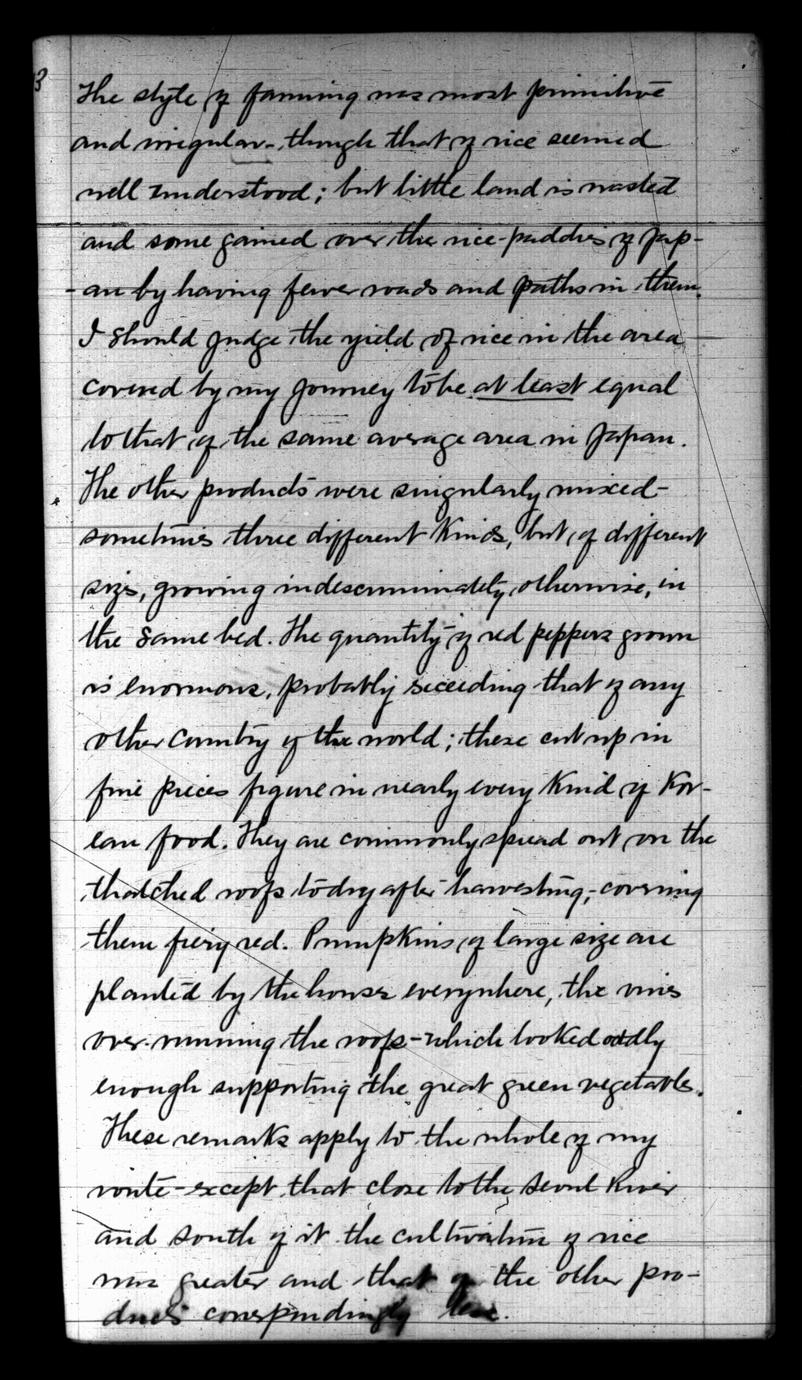 3
The style of farming was most primitive
and irregular-, though that of rice seemed
well understood; but little land is wasted
and some gained over the rice-paddies of Jap-
-an by having fewer roads and paths in them.
I should judge the yield of rice in the area
covered by my journey to be at least equal
to that of the same average area in Japan.
The other products were singularly mixed-
sometimes three different kinds, but of different
sizes, growing indescriminately, otherwise, in
the same bed. The quantity of red peppers grown
is enormous, probably exceeding that of any
other country of the world; these cut up in
fine pieces figure in nearly every kind of Kor-
ean food. They are commonly spread out on the
thatched roofs to dry after harvesting,- covering
them fiery red. Pumpkins of large size are
planted by the houses everywhere, the vines
over-running the roofs-which looked oddly
enough supporting the great green vegetable.
These remarks apply to the whole of my
route-except that close to the Seoul River
and south of it the cultivation of rice
was greater and that of the other pro-
ducts correspondingly less.